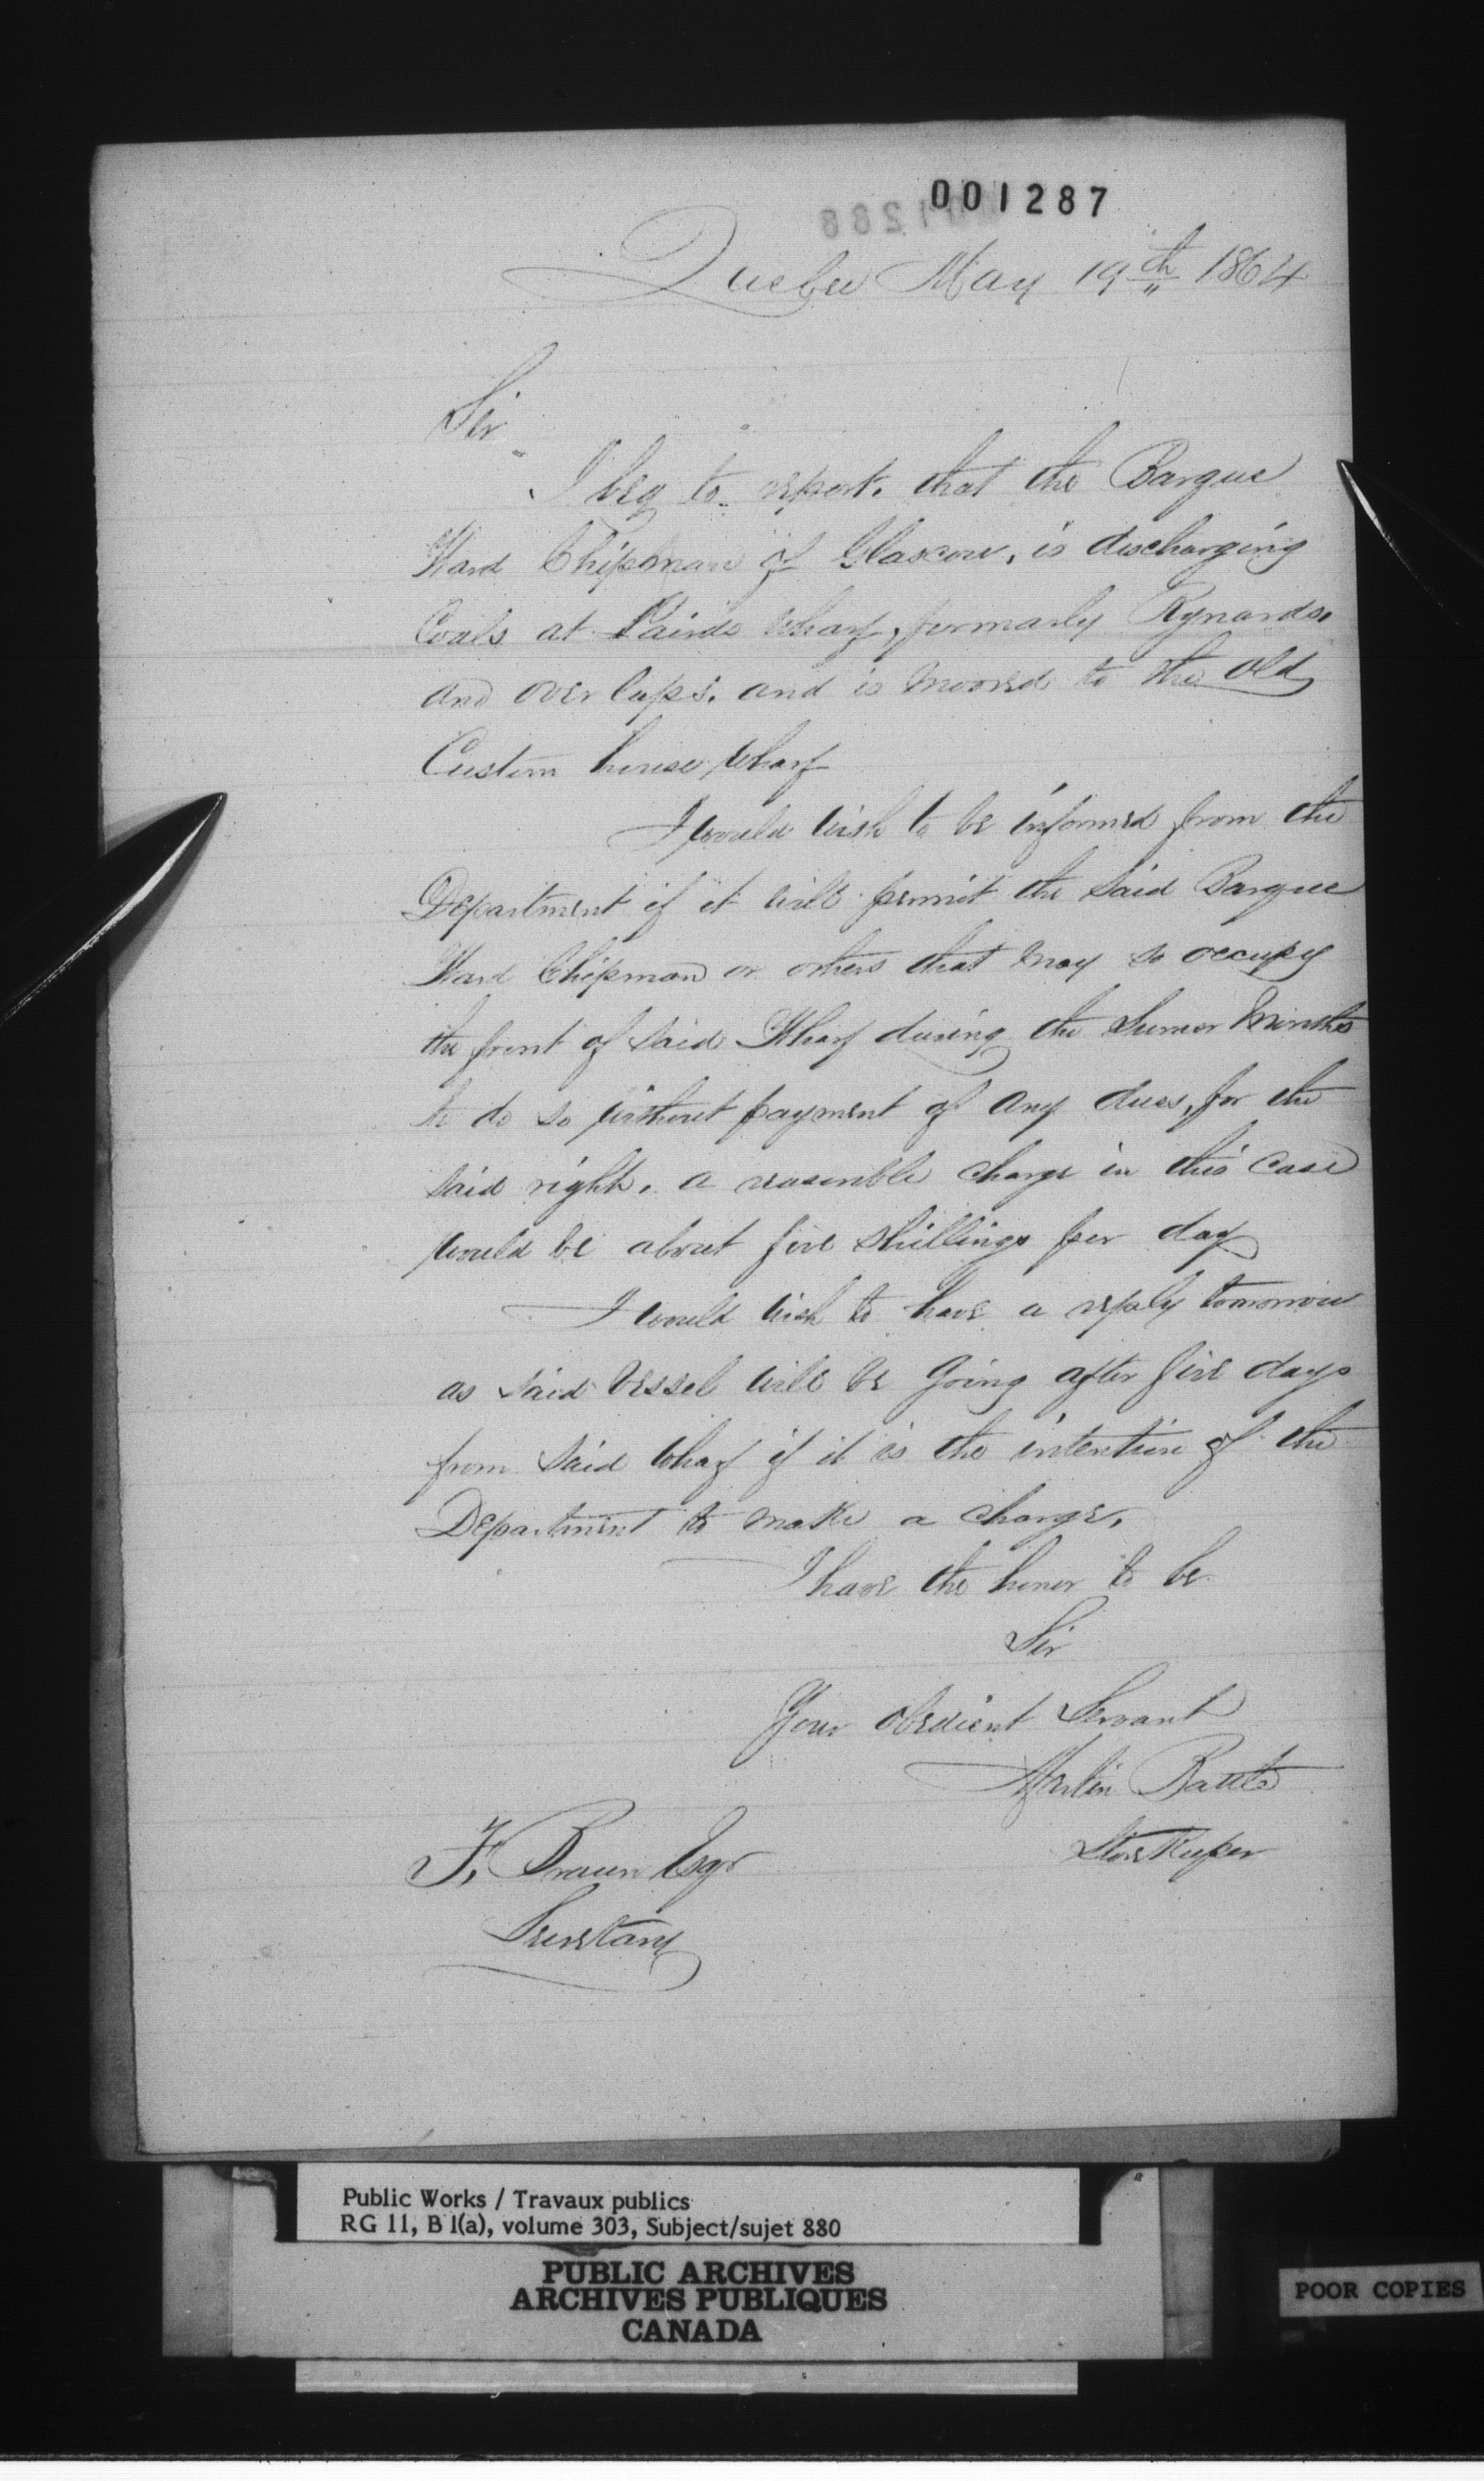 001287
Quebec May 19th 1864
Sir
I beg to report. that the Barque
Ward Chipman of Glascow, is discharging
Coals at Lairds wharf, formarly Rynards.
and over laps. and is moored to the old
Custom house wharf
I would wish to be informed from the
Department if it will permit the said Barque
Ward Chipman or others that may so occupy
the front of said Wharf during the Sumer Months
to do so without payment of any dues, for the
said right. a reasonble charge in this case
would be about five shillings per day
I would wish to have a reply tomorrow
as said vessel will be going after five days
from said whaf if it is the intention of the
Department to make a charge.
I have the honor to be
Sir
Your obedient Servant
Martin Battle
StoreKeeper
F. Braun Esqr
Secretary
Public Works / Travaux publics
RG 11, B 1(a), volume 303, Subject/sujet 880
PUBLIC ARCHIVES
ARCHIVES PUBLIQUES
CANADA
POOR COPIES